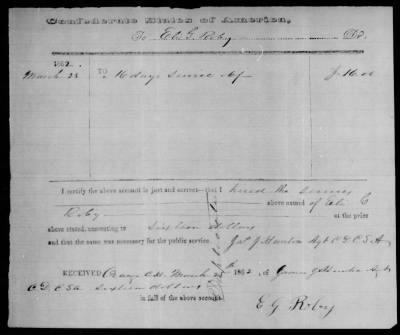 Confederate States of America,
To E. G. Roby Dr.
1862.
March 28 TO 16 days service $16.00
I certify the above account is just and correct—that I hired the services
above named of C
Roby at the price
above stated, amounting to sixteen dollars
and that the same was necessary for the public service. Jas J Agt C.S.A
RECEIVED C.H. March 28th 1862, of James J Agt
C.S.A sixteen dollars
in full of the above account.
E G Roby